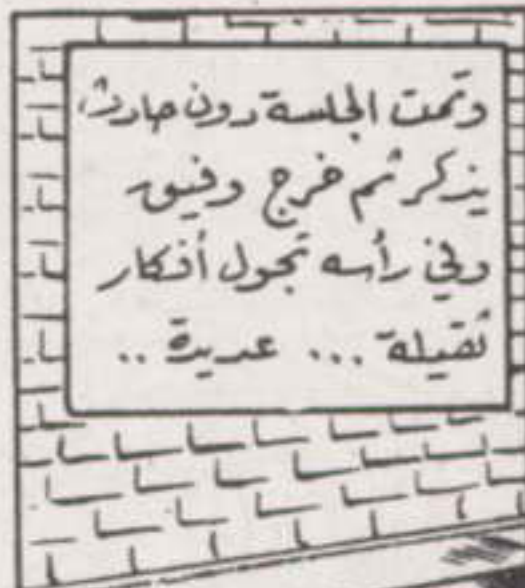 وتمت الجلسة دون حادث،
يذكر ثم خرج وفيق
وفي رأسه تجول أفكار
ثقيلة ... عديدة ..